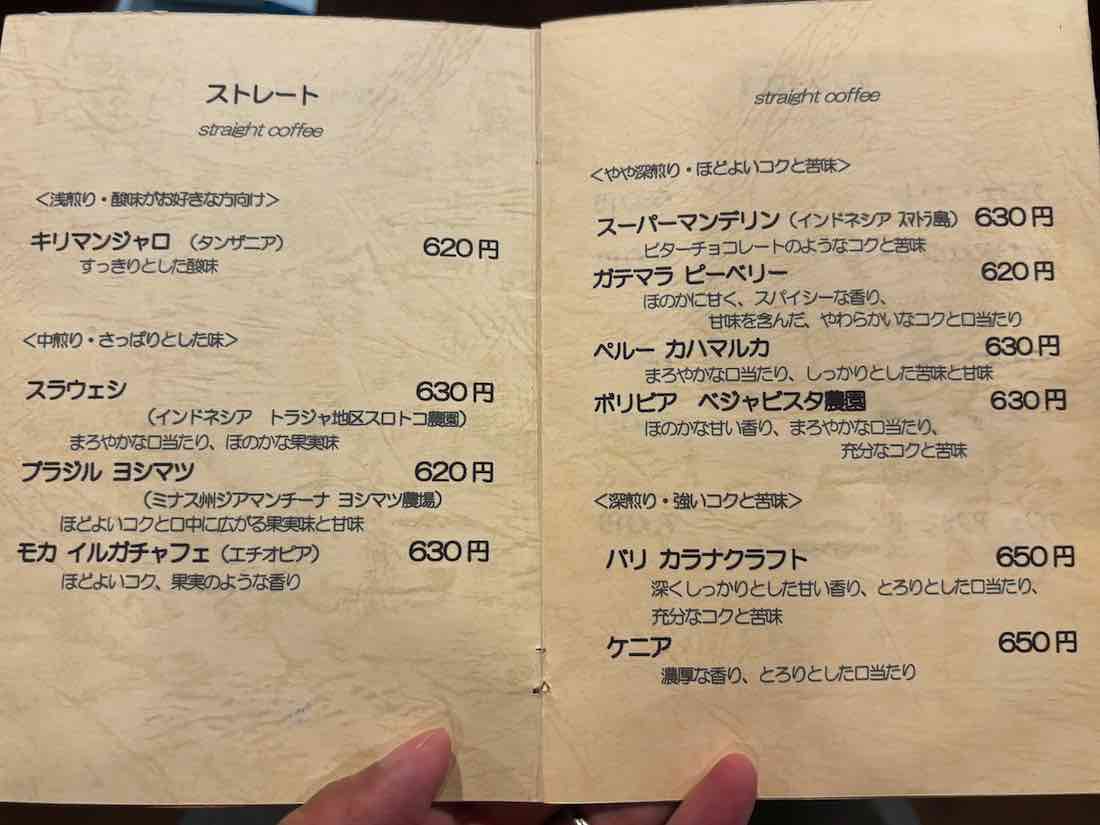 ストレート
straight coffee
<浅煎り・酸味がお好きな方向け>
キリマンジャロ (タンザニア) 620円
すっきりとした酸味
<中煎り・さっぱりとした味>
スラウェシ 630円
(インドネシア トラジャ地区スロトコ農園)
まろやかな口当たり、ほのかな果実味
ブラジル ヨシマツ 620円
(ミナス州ジアマンチーナ ヨシマツ農場)
ほどよいコクと口中に広がる果実味と甘味
モカ イルガチャフェ (エチオピア) 630円
ほどよいコク、果実のような香り
straight coffee
<やや深煎り・ほどよいコクと苦味>
スーパーマンデリン (インドネシア スマトラ島) 630円
ビターチョコレートのようなコクと苦味
ガテマラ ピーベリー 620円
ほのかに甘く、スパイシーな香り、
甘味を含んだ、やわらかいなコクと口当たり
ペルー カハマルカ 630円
まろやかな口当たり、しっかりとした苦味と甘味
ボリビア ベジャビスタ農園 630円
ほのかな甘い香り、まろやかな口当たり、
充分なコクと苦味
<深煎り・強いコクと苦味>
バリ カラナクラフト 650円
深くしっかりとした甘い香り、とろりとした口当たり、
充分なコクと苦味
ケニア 650円
濃厚な香り、とろりとした口当たり